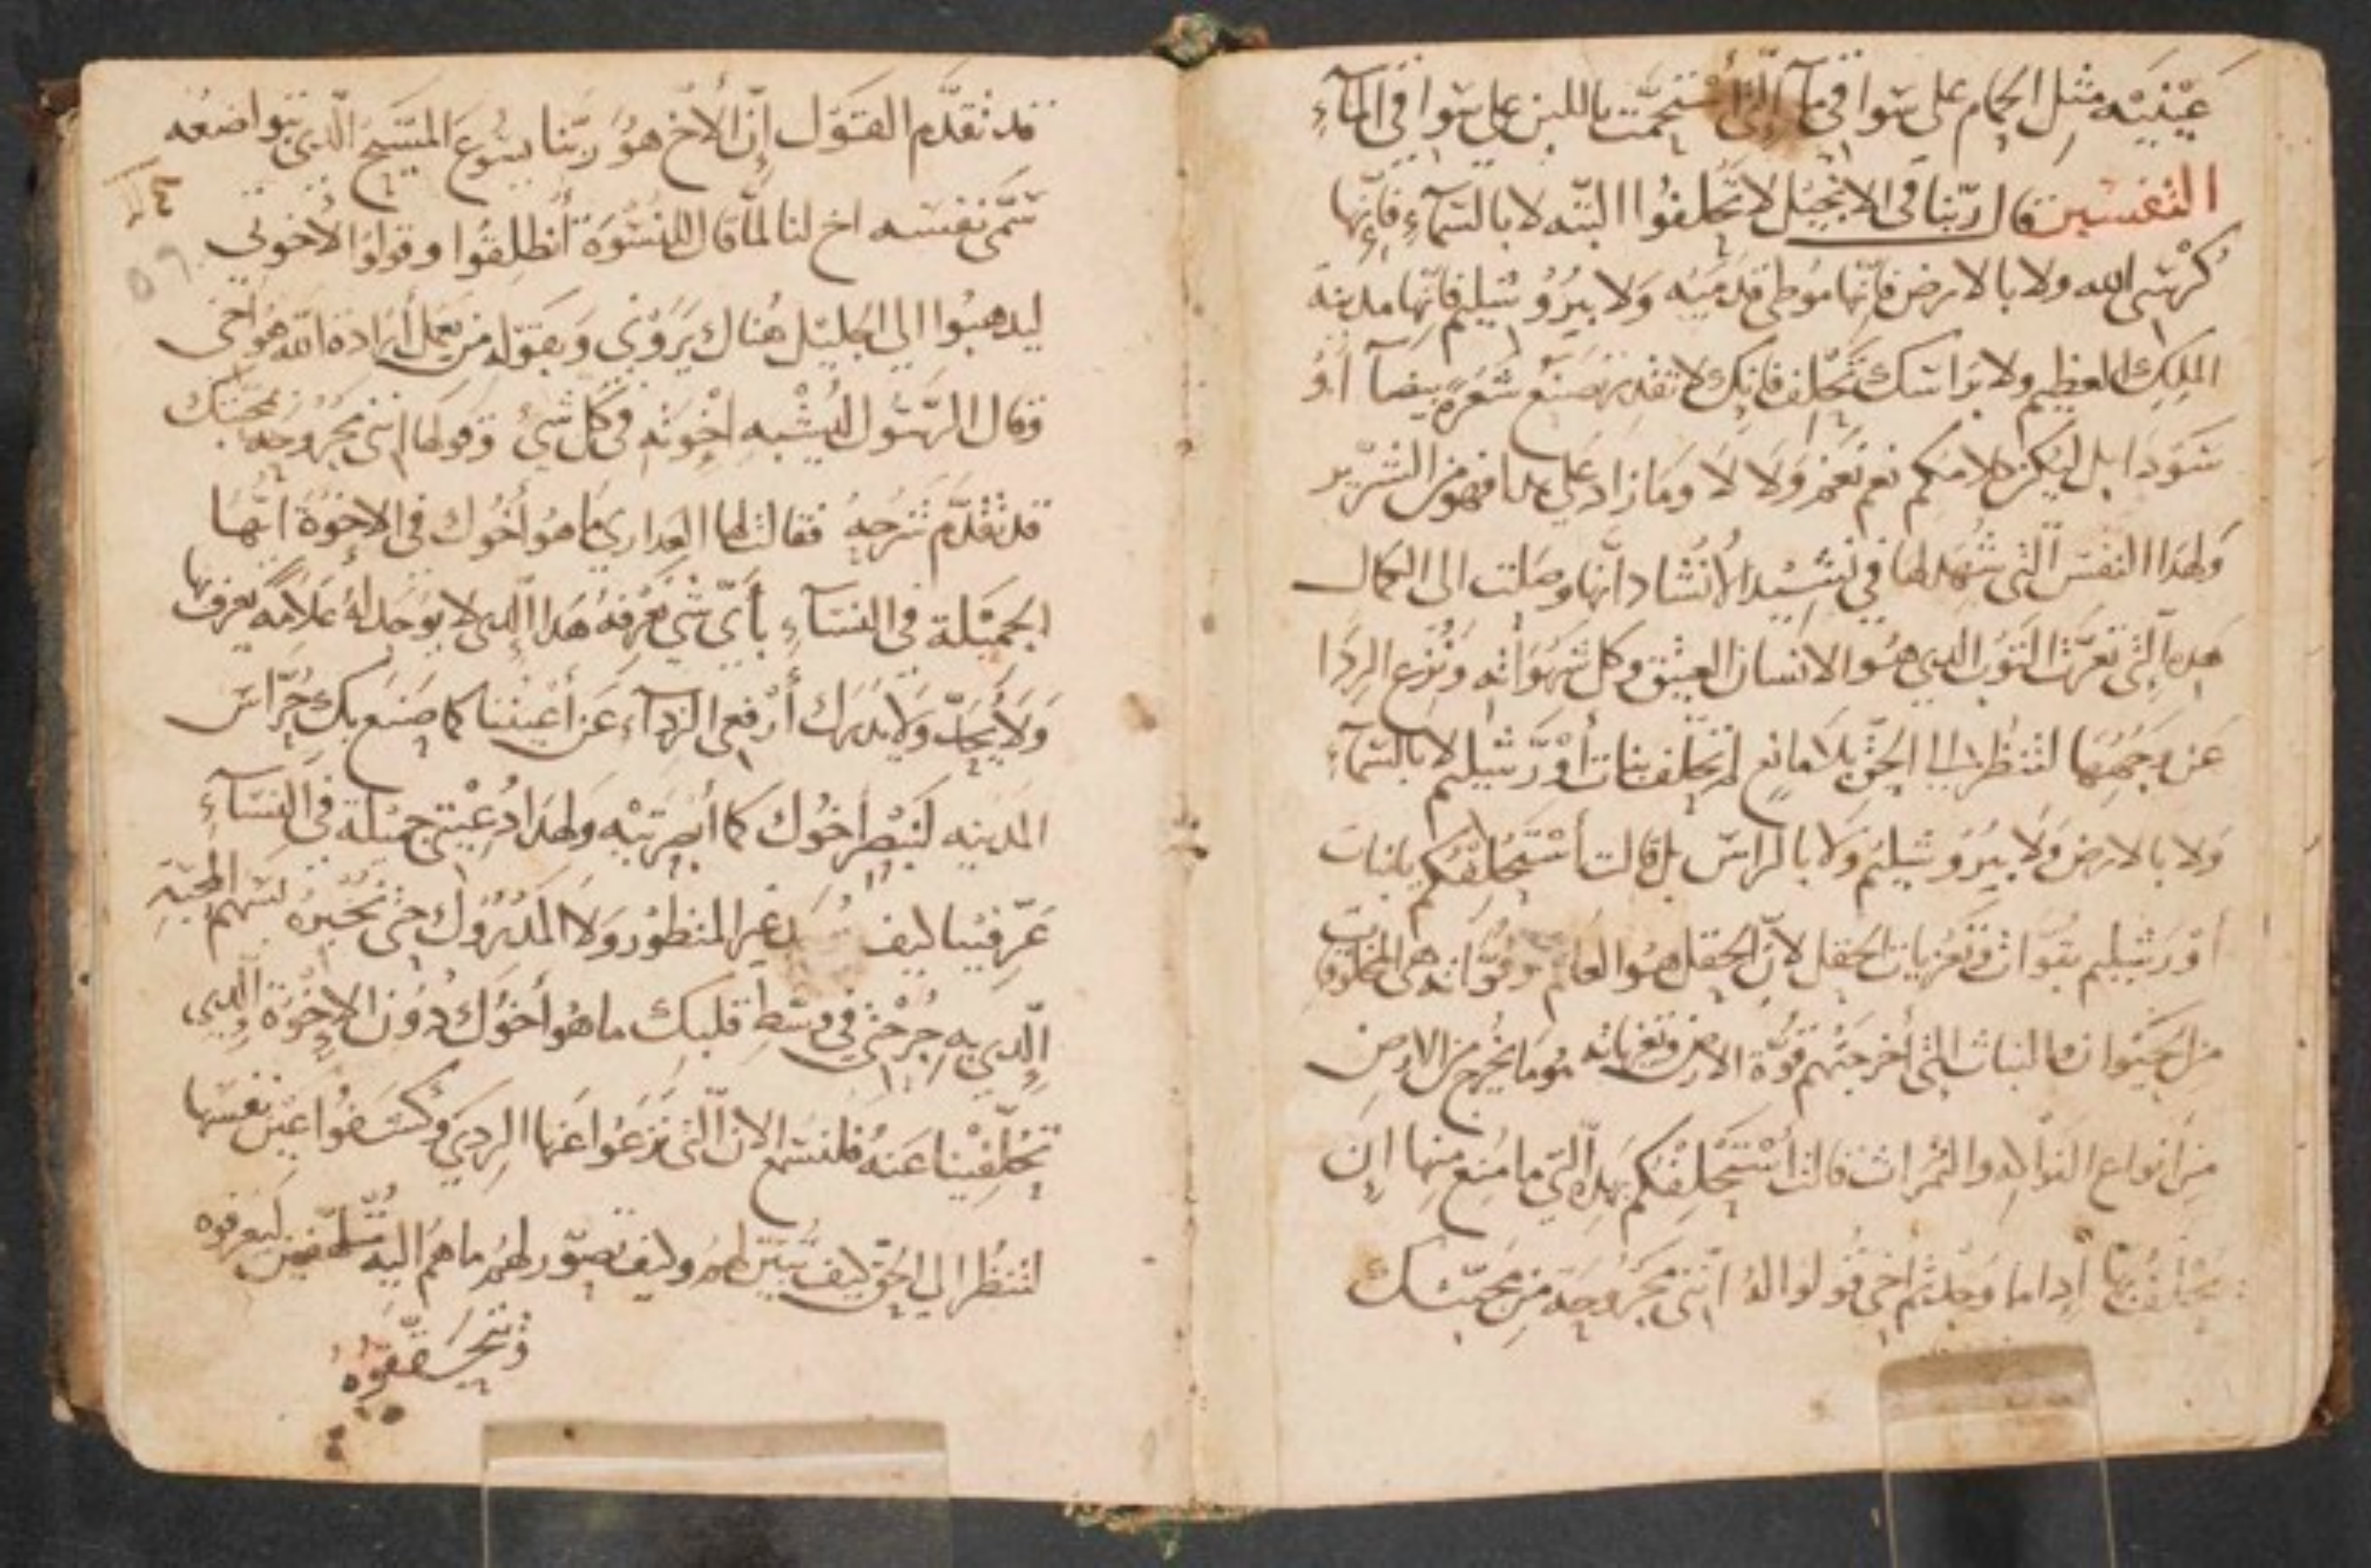 عينيه مثل الحمام على سواقي ما التي أستحمت باللبن على سواقي المآءِ
التفسير قال ربّنا في الانجيل لا تحلفوا البتّه لا بالسمآءِ فإنّها
كرسَى الله ولا بالارض فانّها موطى قدميه وَلا بيرُوشليم فانّها مدينة
الملِك العظيم ولا براسك تحلف فانك لا تقدر تصنع شعرة بيضآ أوْ
سَودا بل ليكن كلامكم نعم نعم وَلا لا وما زاد على هدا فهو من الشرّير
وَلهدا النفس الّتى شُهد لها في نشيد الأنشاد انّها وصلت الى الكمال
هده الّتي تعرّت التوب الدي هو الانسان العتيق وكل شهواته ونُزع الردَا
عَن وَجهها لتنظر الى الحقّ بلا مانع لم تحلّف بنات أوْرَشيليم لا بالسمآءِ
وَلا بالارض وَلا بيرُوشيليم وَلا بالراسّ بل قالت أستحلفكم يا بنات
أوْرَشيليم بقوات وَتغزيات الحقل لانّ الحقل هو العالم وقوّاته هى المخلوقات
من الحيوان والنبات التى أخرجتهم قوّة الارض وتغزياته هُو ما يخرج من الارض
من أنواع التوالد والثمرات قالت أستحلفكم بهده الّتي ما مُنع منها ان
يحلف بها أدا ما وجدتم أخى قُولوا لهُ انّنى مجرُوحَة من محبّتك
قد تقدّم القوَل إنّ الأخ هوُ ربّنا يسُوعَ المسَيح الّدي بتواضعه
سَمّى نفسَه اخ لنا لمّا قال للنسْوَة أنطلِقُوا وقولوا لأخوتي
ليدهبُوا الي الجليَل هُناك يرَوْني وَبقوَله من يعمل أرادة الله هُو أخى
وَقال الرسَول ليُشْبه اخْوَته في كل شَئ وَقولها انّنى مجرُوحَه بمحبّتك
قد تقدّم شَرحهُ فقالت لها العداري ما هو أخُوك في الاخوَة ايّتهَا
الجميَلة في النسَآءِ بأىّ شَى نعرفهُ هَدا الّدى لا يوَجد لهُ علامَه يعرف بها
وَلا يُحَدّ وَلا يدرَك أرْفعى الردآء عَن أعيننا كما صَنع بك حُرّاس
المدينه لننظر أخوُك كما أبصرَتيْه وَلهدَا دُعيْتى جميَلة في النسَآءِ
عَرّفيْنا كيف غير المنظوُر وَلا المدرُوك حتى نخبرهُ لسَهم المحبّة
الّدي به جُرْحتي في وسَط قلبك ما هُو أخوُك دوُن الإخوُة الّدي
تحلّفيْنا عَنهُ فلنسَمع الان الّتى نزعُوا عَنها الردي وَكشَفوُا عيَن نفسَها
لتنظُر الي الحقّ كيف تبيّن لهمُ وكيف تصوّر لهمُ ما هم اليه ليعرفوه
وَيتحَقّقوُهُ